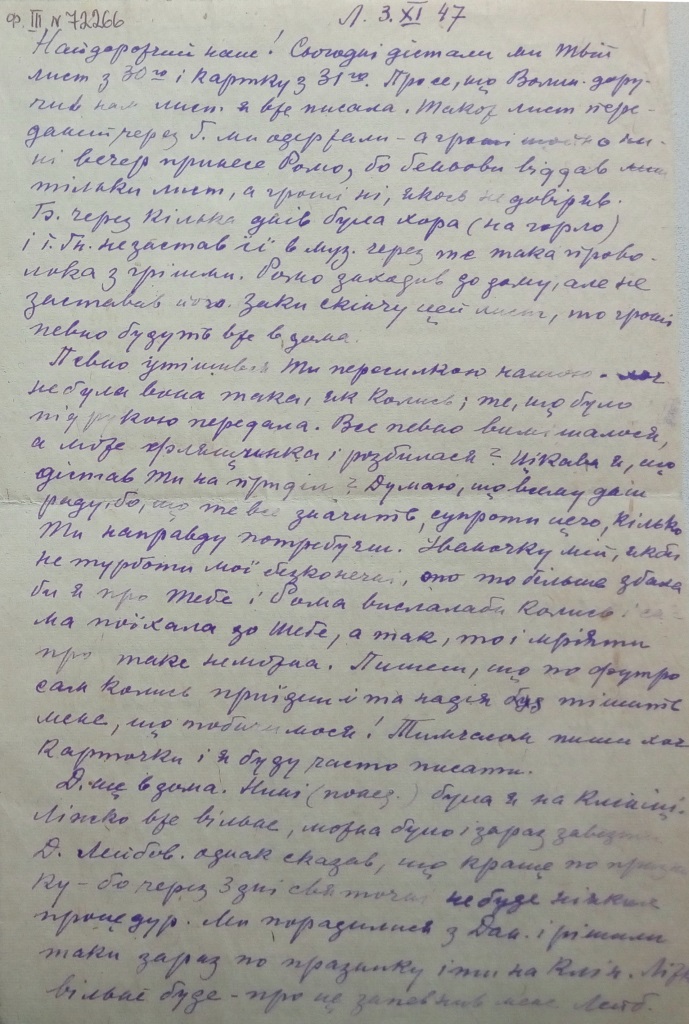 Ф. III № 72266
Л. 3. XI 47
1
Найдорожчий наш! Сьогодні дістали ми Твій
лист з 30го і картку з 31го. Про се, що Волин. дору-
чив нам лист я вже писала. Також лист пере-
даний через Б. ми одержали – а гроші щойно ни-
ні вечер принесе Ромо, бо бенвови віддав
тільки лист, а гроші ні, якось не довіряв.
Б. через кілька днів була хора (на горло)
і І. Гн. не застав її в муз. через те така прово-
лока з грішми. Ромо заходив до дому, але не
заставав його. Заки скінчу цей лист, то гроші
певно будуть вже вдома.
Певно утішився Ти пересилкою нашою. – хоч
не була вона така, як колись; те, що було
під рукою передала. Все певно вимішалося,
а може фляшчинка і розбилася? Цікава я, що
дістав Ти на приділ? Думаю, що всьому даш
раду, бо, що те все значить, супроти цего, кілько
Ти направду потребуєш. Іваночку мій, якби
не турботи мої безконечні, то більше збала
би я про Тебе і Рома вислалаби колись і са-
ма поїхала до Тебе, а так, то і мріяти
про таке неможна. Пишеш, що по футро
сам колись приїдеш і та надія тішить
мене, що побачимося! Тимчасом пиши хоч
карточки і я буду часто писати.
Д. ще вдома. Нині (понед.) була я на Клініці.
Ліжко вже вільне, можна було і зараз завезти
Д. Лейбов. однак сказав, що краще по празни-
ку – бо через 3 дні святочні не буде ніяких
процедур. Ми порадилися з Дан. і рішили
таки зараз по празнику іти на Клін. Ліжк
вільне буде – про це запевнив мене Лейб.